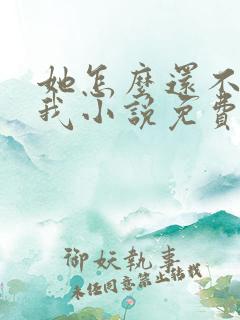 她怎麼還不
我小說免費
御妖執事
未任同意禁止轉載